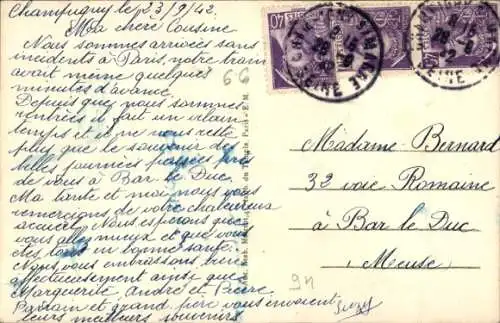 Champigny le 23/9/42
Ma chère Cousine
Nous sommes arrivées sans
incidents à Paris, notre train
avait même quelques
minutes d'avance.
Depuis que nous sommes
rentrées il fait un vilain
temps et il ne nous reste
plus que le souvenir des
belles journées passées près
de vous à Bar le Duc.
Ma tante et moi nous vous
remercions de votre chaleureux
accueil. Nous espérons que
vous allez mieux et que vous
êtes tous en bonne santé.
Nous vous embrassons bien
affectueusement ainsi que
Marguerite, André et Pierre
Parrain et grand père vous envoient
leurs meilleurs souvenirs
Suzy
66
Paris - E.M.
Madame Bernard
32 voie Romaine
à Bar le Duc
Meuse
9n
40
SEINE